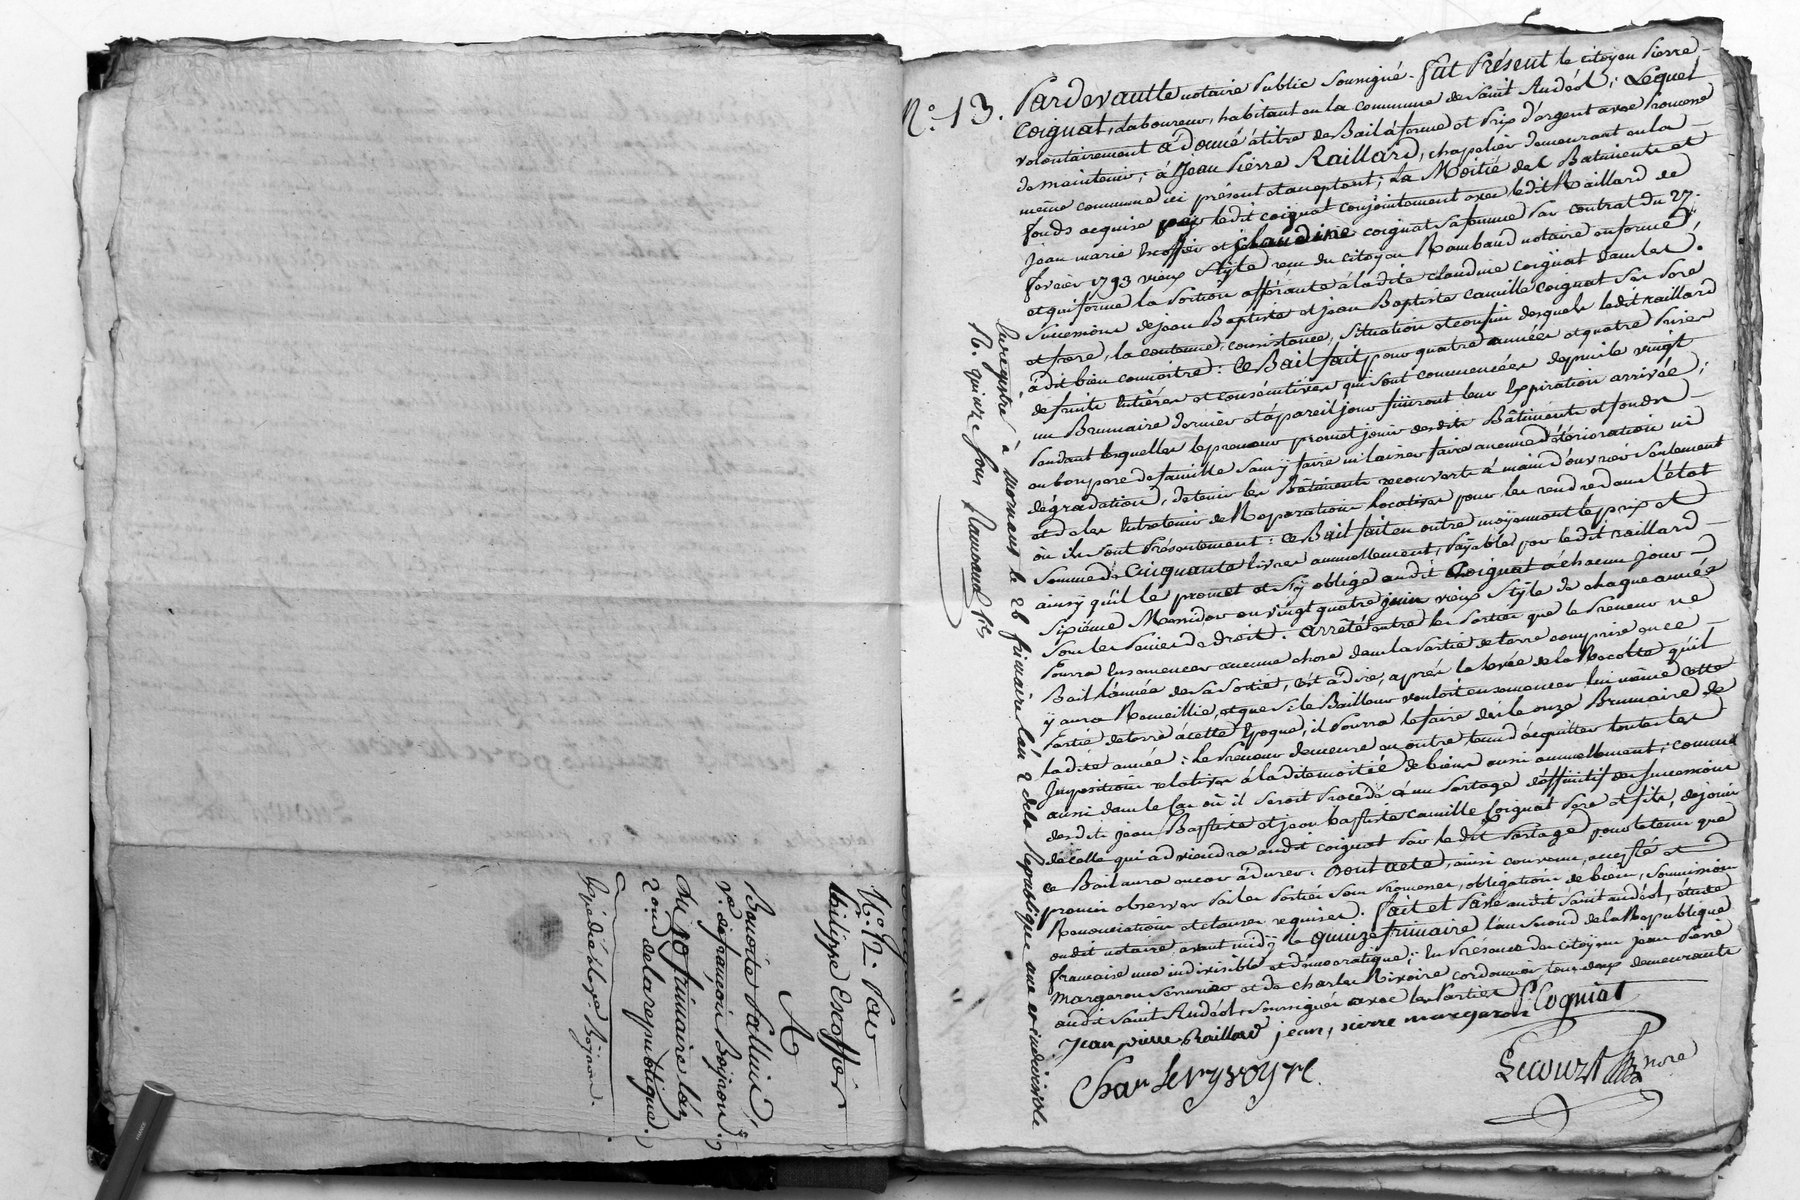 N.° 12. Par
Philippe Escoffier
A
Benoite Palluis
v.e de françois Boiron.
du 10 frimaire l'an
2 em.e de la republique.
Expédié à la ve Boiron.
N.° 13.
Pardevant le notaire Public soussigné. fut Présent le citoyen Pierre
Coignat, laboureur, habitant en la commune de Saint Andéol; Lequel
volontairement a donné à titre de Bail à ferme et Prix d'argent avec Promesse
de maintenir; à Jean Pierre Raillard, chapelier demeurant en la
même commune ici présent et acceptant; La Moitié des Batiments et
fonds acquise par ledit coignat conjointement avec ledit Raillard de
Jean marie Escoffier et claudine coignat sa femme Par contrat du 27.
février 1793 vieux Style reçu du citoyen Rambaud notaire en forme,
et qui forme la Portion afférante à ladite claudine coignat dans les
Successions de jean Baptiste et jean Baptiste camille coignat Ses Pere
et frere, la contenue, consistance, situation et confin desquels ledit raillard
à dit bien connoitre: Ce Bail fait pour quatre années et quatre Prises
de fruits Entières et consécutives qui sont commencées depuis le vingt
un Brumaire dernier et à pareil jour finiront leur Expiration arrivée;
Pendant lesquelles le preneur promet jouir desdits Bâtiments et fonds
en bon pere de famille sans y faire ni laisser faire aucune détérioration ni
dégradation, de tenir les Bâtiments recouverts à main d'ouvrier Seulement
et de les Entretenir de Réparations locatives pour les rendre dans l'état
où ils sont Présentement: ce Bail fait en outre moyennant le prix et
Somme de Cinquante livres annuellement, Payables par ledit raillard
ainsy qu'il le promet et s'y oblige audit Coignat à chacun jour
Sixième Messidor ou vingt quatre juin vieux Style de chaque année
Sous les Peines de droit. Arrêté entre les Parties que le Preneur ne
Pourra Ensemencer aucune chose dans la Partie de terre comprise en ce
Bail l'année de sa Sortie, c'est à dire, après la levée de la Récolte qu'il
y aura Recueillie, et que Si le Bailleur vouloit ensemencer lui même cette
Partie de terre à cette Epoque, il Pourra le faire dès le onze Brumaire de
ladite année: Le Preneur demeure en outre tenu d'acquitter toutes les
Impositions relatives à ladite moitié de biens aussi annuellement; comme
aussi dans le Cas où il seroit Procédé à un Partage déffinitif des Successions
desdits Jean Baptiste et jean baptiste camille Coignat Pere et fils, de jouir
de celle qui adviendra audit coignat Par le dit Partage pour le tems que
ce Bail aura encor à durer. Dont acte, ainsi convenu, accepté et
promis observer Par les Parties Sous Promesses, obligations de biens, Soumissions
Renonciations et clauses requises. fait et Passé audit Saint andéol, étude
dudit notaire avant midy le quinze frimaire l'an Second de la République
francaise une indivisible et démocratique; En Présence des citoyens Jean Pierre
Margaron serrurier et de Charles Rivoire cordonnier tous deux demeurants
audit Saint Andéol, soussignés avec les Parties
P. Cogniat
Jean pierre Raillard jean, pierre margaron
Charle ryvoyre.
Lecourt nore
Enregistré à mornant le 26 frimaire l'an 2 de la République une et indivisible
R. quinze Sous